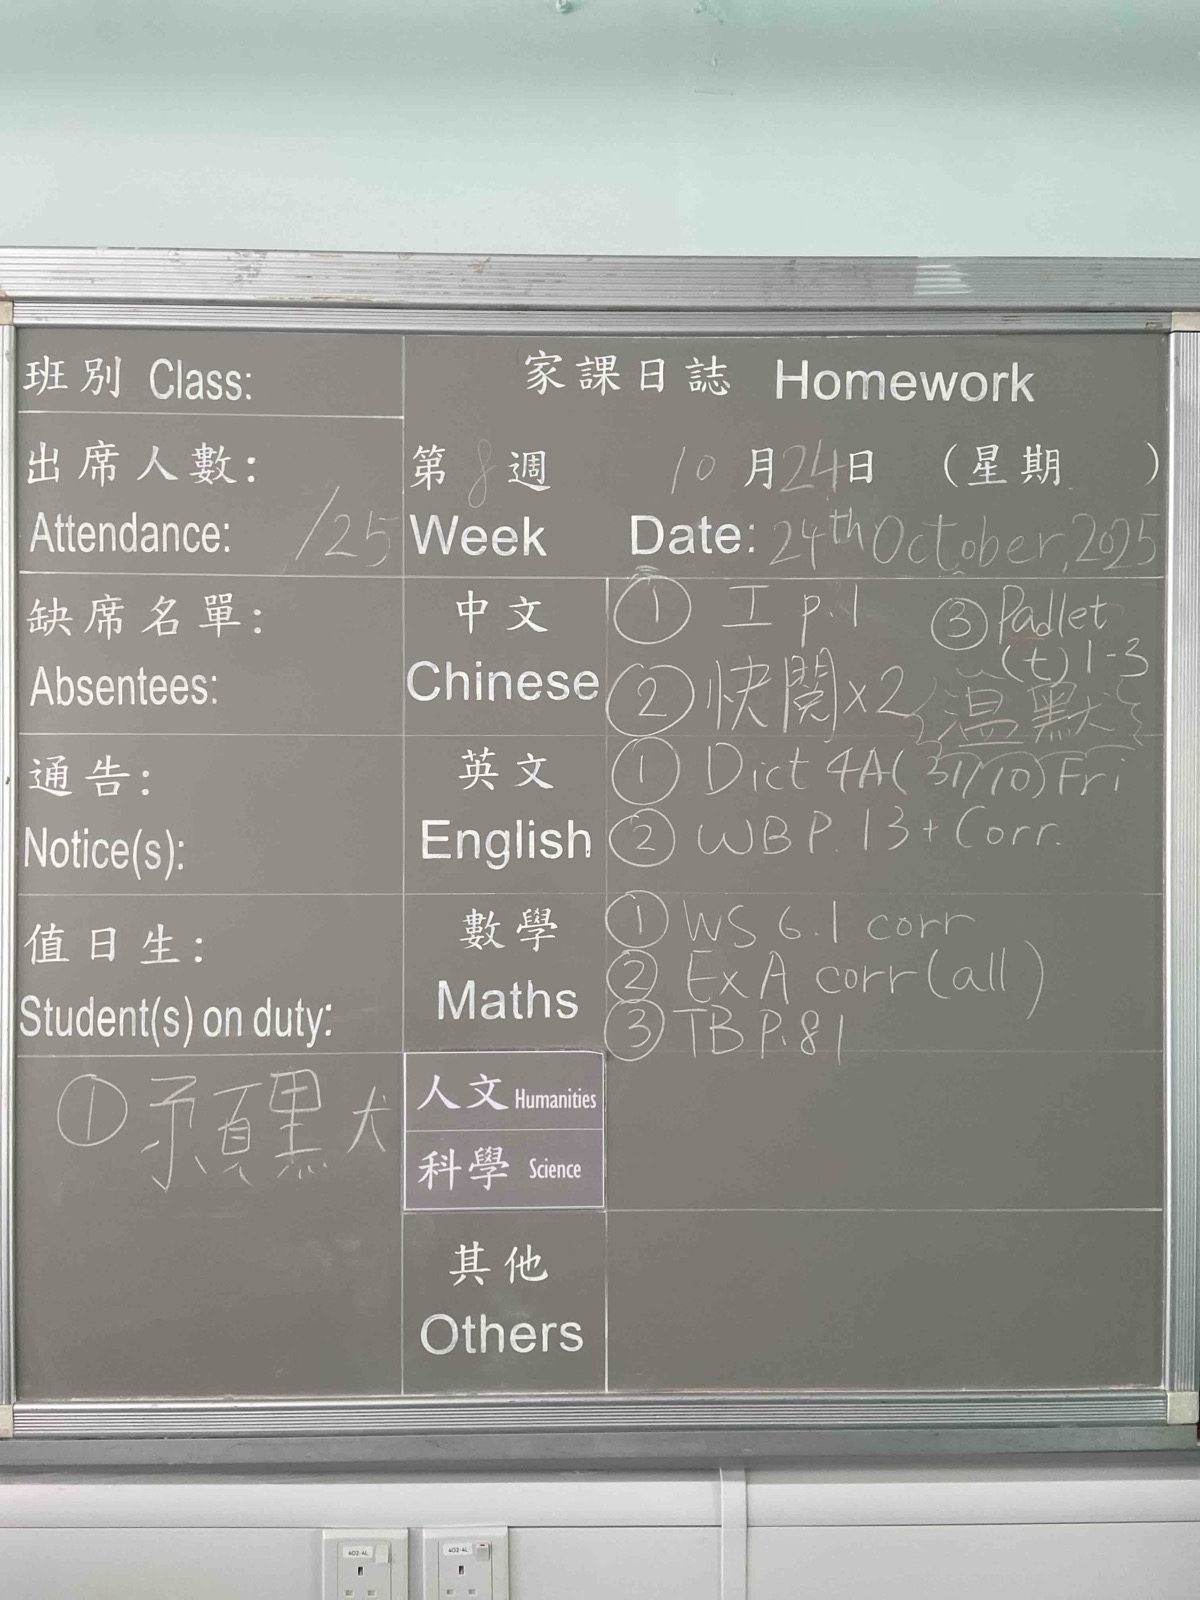 班別 Class:
家課日誌 Homework
出席人數:
Attendance: /25
第8週 10月24日 (星期 )
Week Date: 24th October, 2025
缺席名單:
Absentees:
中文
Chinese
① 工 p.1
② 快閱x2
③ Padlet
(t) 1-3
{溫默}
通告:
Notice(s):
英文
English
① Dict 4A (31/10) Fri
② WB P. 13 + Corr.
值日生:
Student(s) on duty:
① 預默
數學
Maths
① WS 6.1 corr
② Ex A corr (all)
③ TB P.81
人文 Humanities
科學 Science
其他
Others
402-4L
402-4L